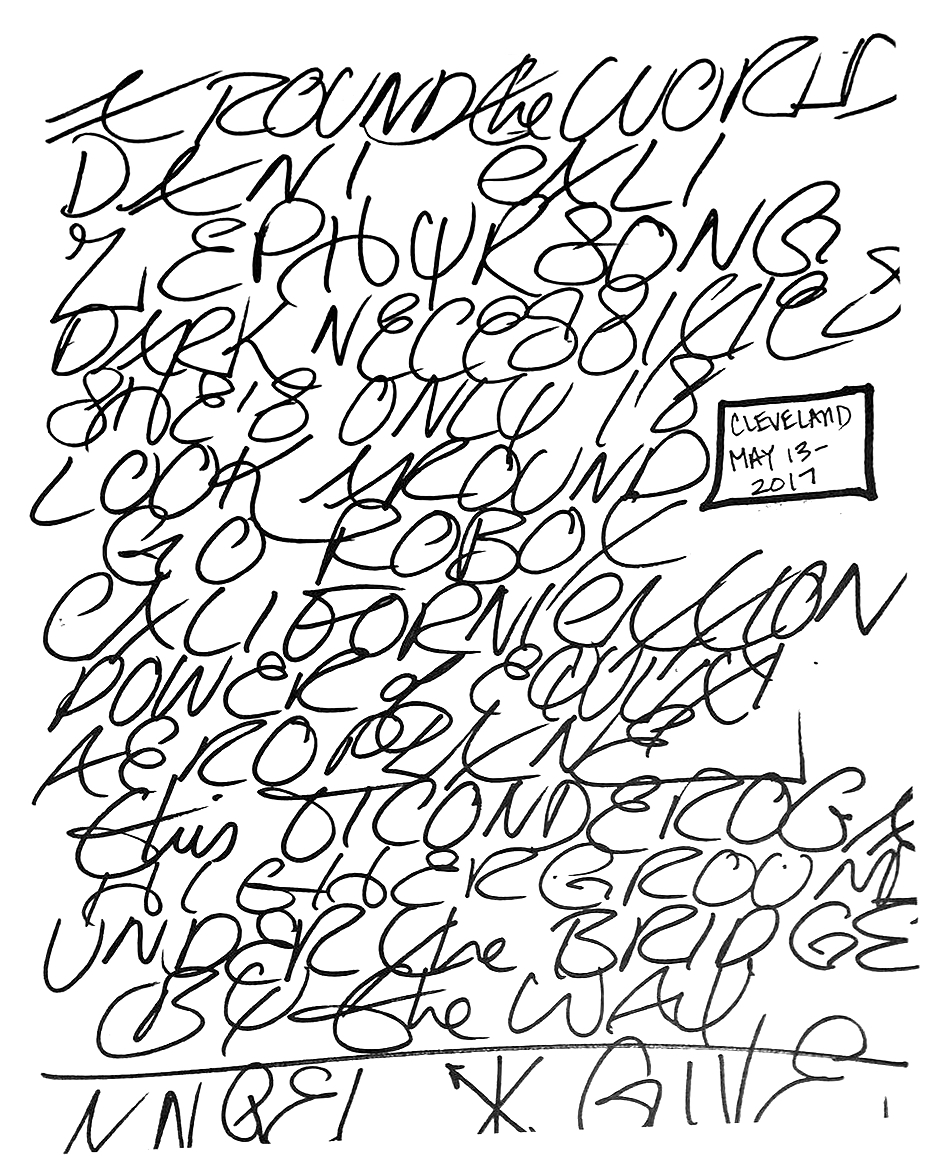 AROUND the WORLD
DANI CALI
ZEPHYR SONG
DARK NECESSITIES
SHE'S ONLY 18
LOOK AROUND
CLEVELAND
MAY 13-
2017
GO ROBOT
CALIFORNICATION
POWER of EQUALITY
AEROPLANE
this TICONDEROGA
HIGHER GROUND
UNDER the BRIDGE
BY the WAY
GIVE